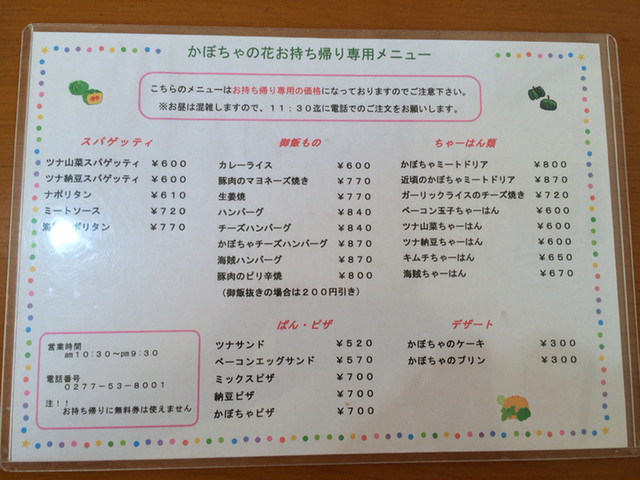 かぼちゃの花お持ち帰り専用メニュー
こちらのメニューはお持ち帰り専用の価格になっておりますのでご注意下さい。
※お昼は混雑しますので、11:30迄に電話でのご注文をお願いします。
スパゲッティ
ツナ山菜スパゲッティ ¥600
ツナ納豆スパゲッティ ¥600
ナポリタン ¥610
ミートソース ¥720
ポリタン ¥770
御飯もの
カレーライス ¥600
豚肉のマヨネーズ焼き ¥770
生姜焼 ¥770
ハンバーグ ¥840
チーズハンバーグ ¥840
かぼちゃチーズハンバーグ ¥870
海賊ハンバーグ ¥870
豚肉のピリ辛焼 ¥800
(御飯抜きの場合は200円引き)
ちゃーはん類
かぼちゃミートドリア ¥800
近頃のかぼちゃミートドリア ¥870
ガーリックライスのチーズ焼き ¥720
ベーコン玉子ちゃーはん ¥600
ツナ山菜ちゃーはん ¥600
ツナ納豆ちゃーはん ¥600
キムチちゃーはん ¥650
海賊ちゃーはん ¥670
ぱん・ピザ
ツナサンド ¥520
ベーコンエッグサンド ¥570
ミックスピザ ¥700
納豆ピザ ¥700
かぼちゃピザ ¥700
デザート
かぼちゃのケーキ ¥300
かぼちゃのプリン ¥300
営業時間
am10:30~pm9:30
電話番号
0277-53-8001
注!!
お持ち帰りに無料券は使えません